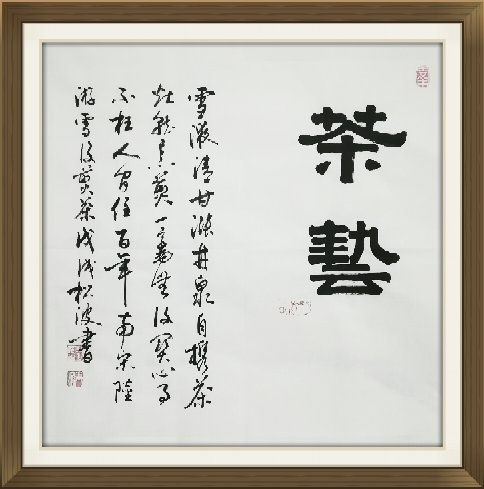 茶藝
雪液清甘漲井泉自携茶
灶就烹煎一毫無復關心事
不枉人间住百年南宋陸
游雪後煎茶戊戌松波書